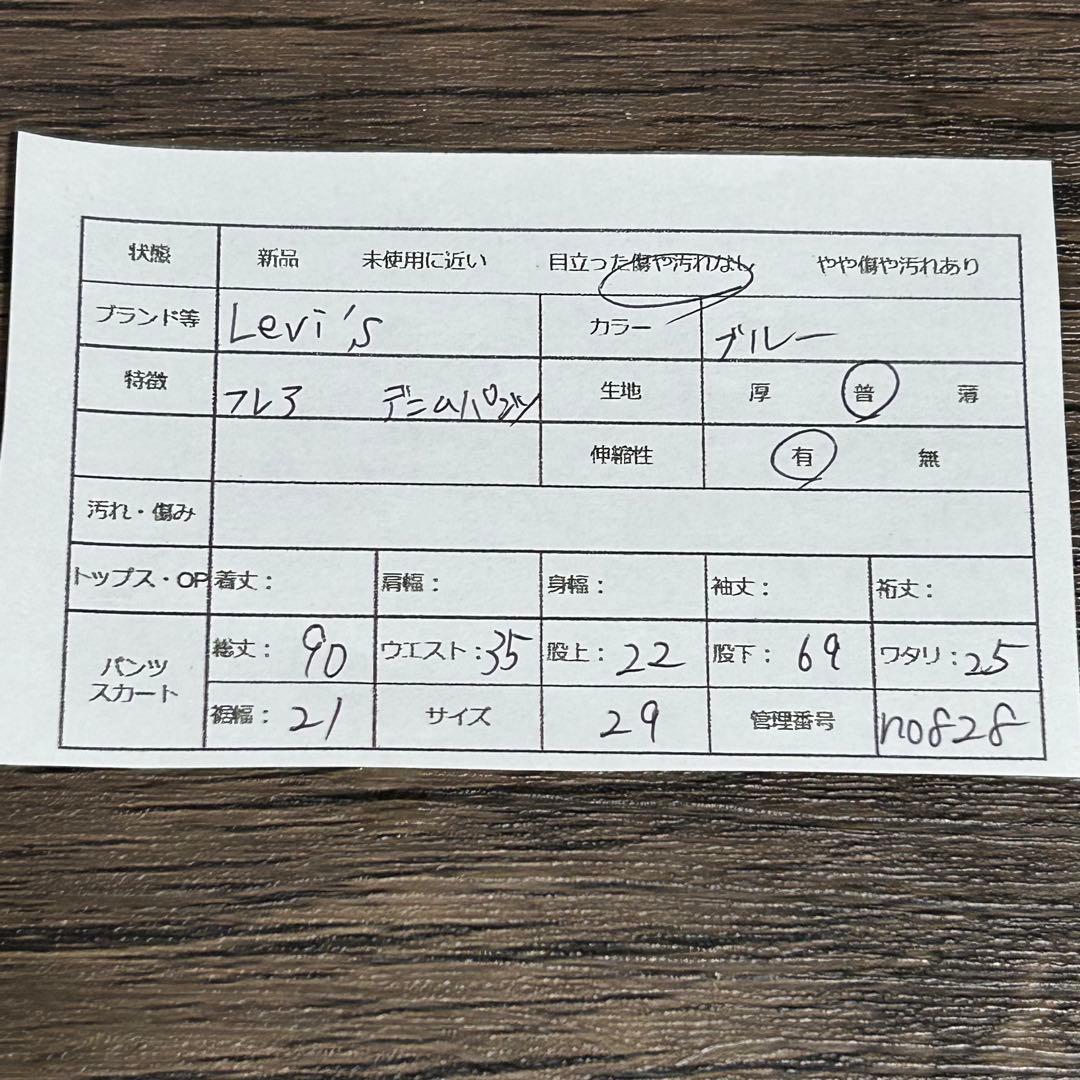 状態 新品 未使用に近い 目立った傷や汚れなし やや傷や汚れあり
ブランド等 Levi's カラー ブルー
特徴 フレア デニムパンツ 生地 厚 普 薄
伸縮性 有 無
汚れ・傷み
トップス・OP 着丈： 肩幅： 身幅： 袖丈： 裄丈：
パンツ スカート 総丈： 90 ウエスト：35 股上：22 股下：69 ワタリ：25
裾幅：21 サイズ 29 管理番号 no828